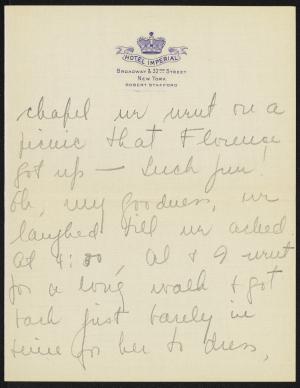 HOTEL IMPERIAL
BROADWAY & 32ND STREET
NEW YORK
ROBERT STAFFORD
chapel we went on a
picnic that Florence
got up — Such fun!
Oh, my goodness, we
laughed till we ached.
At 4:30, Al & I went
for a long walk & got
back just barely in
time for her to dress,